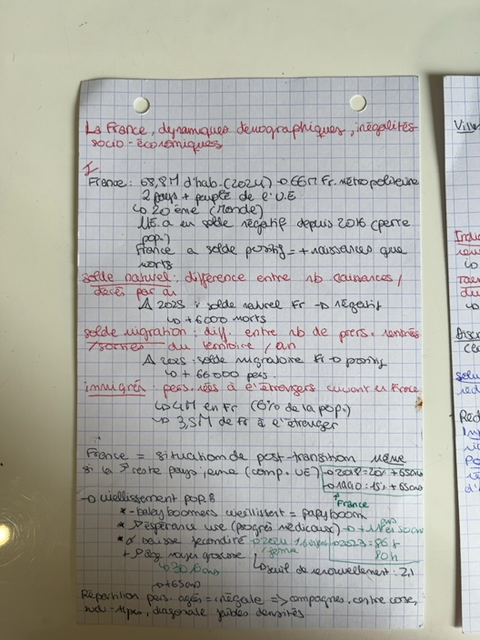 La France, dynamiques démographiques, inégalités
socio-économiques
I
France : 68,8M d'hab. (2024) → 66M Fr. métropolitaine
2 pays + peuplé de l'U.E
↳ 20ème (monde)
U.E a un solde négatif depuis 2016 (perte
pop.)
France a solde positif = + naissances que
morts
solde naturel : différence entre nb naissances /
décès par an
△ 2025 : solde naturel Fr → négatif
↳ + 6000 morts
solde migration : diff. entre nb de pers. rentrées
/sorties du territoire / an
△ 2025 : solde migratoire Fr → positif
↳ + 66 000 pers
immigrés : pers. nées à l'étrangers vivant en France
↳ 4M en Fr (6% de la pop.)
↳ 3,5M de Fr à l'étranger
France = situation de post-transition même
si la Fr reste pays jeune (comp. UE)
→ 2018 = 20% +65ans
→ 1990 : 15% +65ans
France
→ vieillissement pop :
* babyboomers vieillissent = papyboom
* espérance vie (progrès médicaux)
50ans
* baisse fécondité
femme
→ 2023 = 86f
80h
+ âge moyen grossesse
↳ 30,6ans
↳ seuil de renouvellement : 2,1
→ +65ans
Répartition pers. agées = inégale => campagnes, centre corse,
sud-Alpes, diagonale faibles densités
Ville